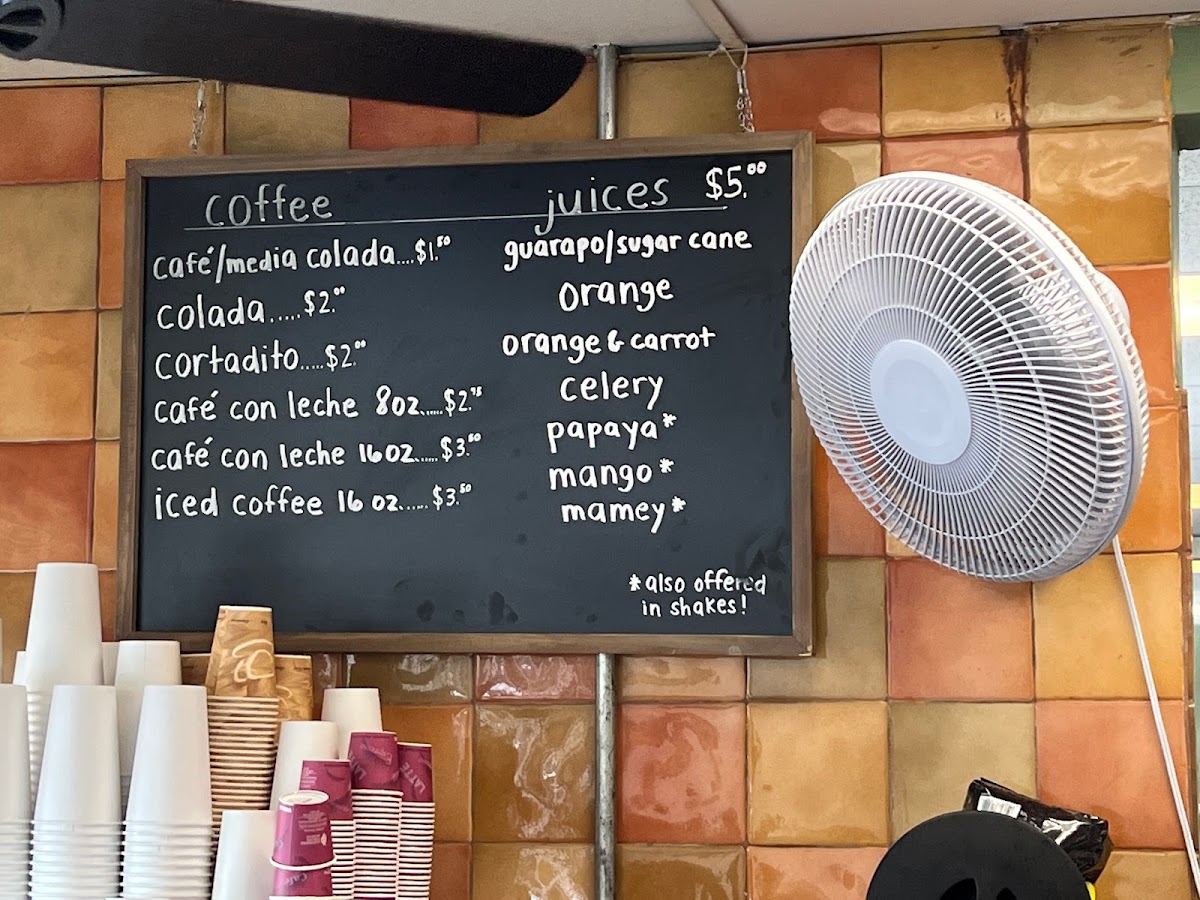 coffee
café/media colada....$1.50
colada.....$2.00
cortadito.....$2.00
café con leche 8oz......$2.75
café con leche 16oz......$3.50
iced coffee 16 oz......$3.50
juices $5.00
guarapo/sugar cane
orange
orange & carrot
celery
papaya*
mango*
mamey*
*also offered
in shakes!
LATTE
LATTE